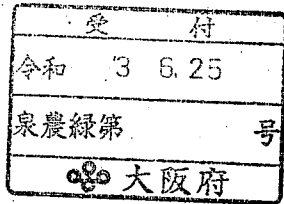 受付
令和 '3 6.25
泉農緑第 号
大阪府